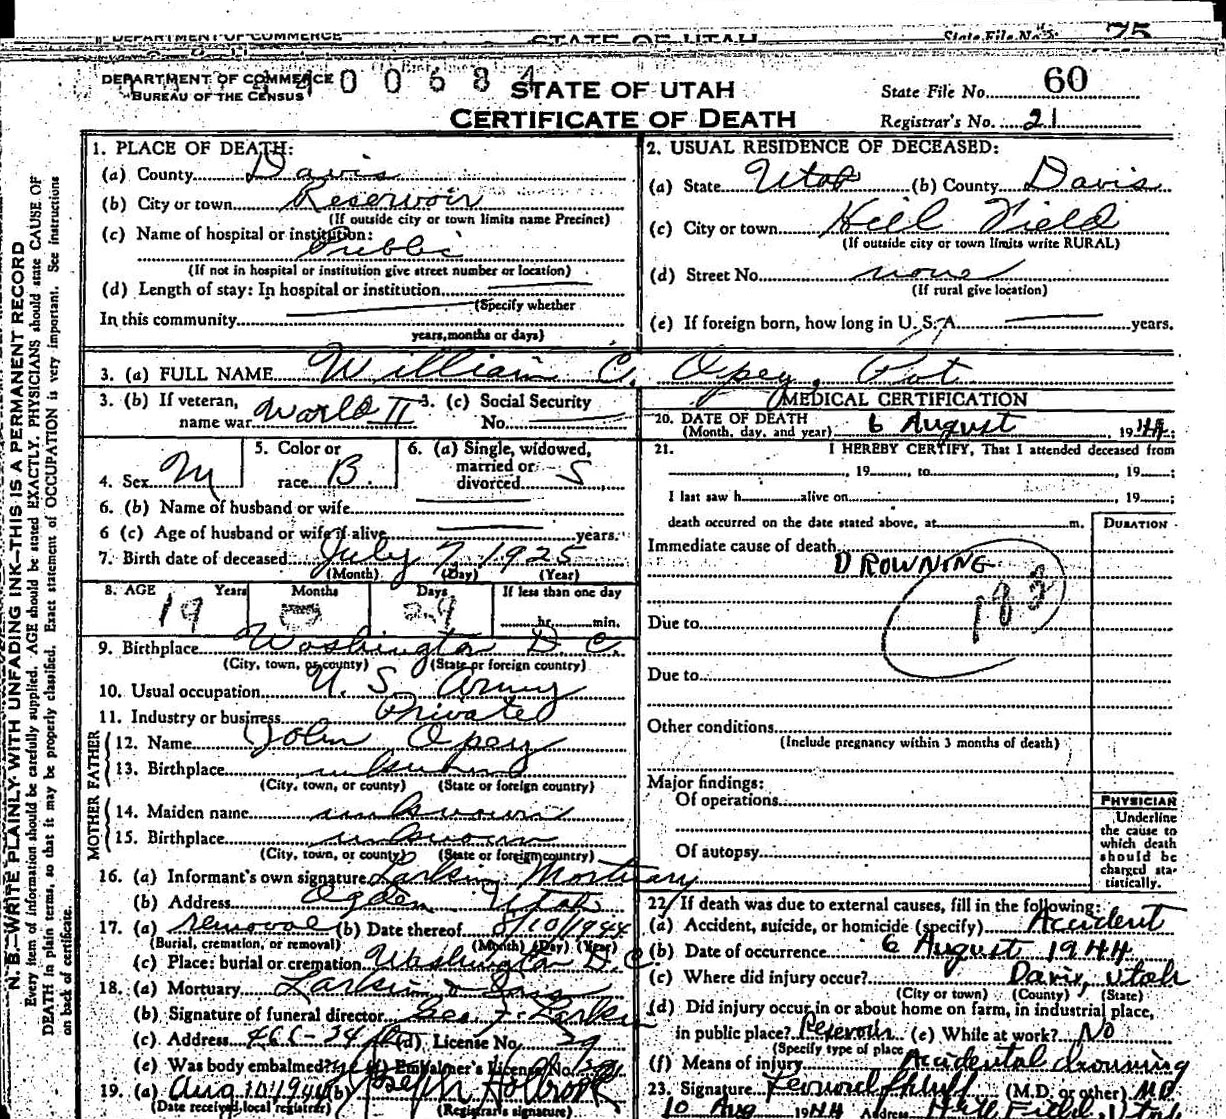 DEPARTMENT OF COMMERCE
STATE OF UTAH
State File No. 75
DEPARTMENT OF COMMERCE
BUREAU OF THE CENSUS
00684
STATE OF UTAH
CERTIFICATE OF DEATH
State File No. 60
Registrar's No. 21
N. B.—WRITE PLAINLY WITH UNFADING INK—THIS IS A PERMANENT RECORD
Every item of information should be carefully supplied. AGE should be stated EXACTLY. PHYSICIANS should state CAUSE OF
DEATH in plain terms, so that it may be properly classified. Exact statement of OCCUPATION is very important. See instructions
on back of certificate.
1. PLACE OF DEATH:
(a) County Davis
(b) City or town Reservoir
(If outside city or town limits name Precinct)
(c) Name of hospital or institution:
Public
(If not in hospital or institution give street number or location)
(d) Length of stay: In hospital or institution
(Specify whether
In this community
years, months or days)
2. USUAL RESIDENCE OF DECEASED:
(a) State Utah (b) County Davis
(c) City or town Hill Field
(If outside city or town limits write RURAL)
(d) Street No. none
(If rural give location)
(e) If foreign born, how long in U. S. A. years.
3. (a) FULL NAME William C. Opey, Pvt
3. (b) If veteran, name war World II 3. (c) Social Security No.
4. Sex M 5. Color or race B. 6. (a) Single, widowed, married or divorced S
6. (b) Name of husband or wife
6 (c) Age of husband or wife if alive years.
7. Birth date of deceased July 7 1925
(Month) (Day) (Year)
8. AGE Years Months Days If less than one day
19 29 hr. min.
9. Birthplace Washington D C.
(City, town, or county) (State or foreign country)
10. Usual occupation U. S. Army
11. Industry or business Private
FATHER
12. Name John Opey
13. Birthplace unknown
(City, town, or county) (State or foreign country)
MOTHER
14. Maiden name unknown
15. Birthplace unknown
(City, town, or county) (State or foreign country)
16. (a) Informant's own signature Larkin Mortuary
(b) Address Ogden Utah
17. (a) removal (b) Date thereof 8/10/1944
(Burial, cremation, or removal) (Month) (Day) (Year)
(c) Place: burial or cremation Washington D. C.
18. (a) Mortuary Larkin & Sons
(b) Signature of funeral director Geo. F. Larkin
(c) Address (d) License No. 29
(e) Was body embalmed? (f) Embalmer's License No.
19. (a) Aug 10 1944 (b) Joseph Holbrook
(Date received local registrar) (Registrar's signature)
MEDICAL CERTIFICATION
20. DATE OF DEATH
(Month, day, and year) 6 August, 1944;
21. I HEREBY CERTIFY, That I attended deceased from
, 19 , to , 19 ;
I last saw h alive on , 19 ;
death occurred on the date stated above, at m.
DURATION
Immediate cause of death
DROWNING
183
Due to
Due to
Other conditions
(Include pregnancy within 3 months of death)
Major findings:
Of operations
Of autopsy
PHYSICIAN
Underline
the cause to
which death
should be
charged sta-
tistically.
22. If death was due to external causes, fill in the following:
(a) Accident, suicide, or homicide (specify) Accident
(b) Date of occurrence 6 August 1944
(c) Where did injury occur? Davis, Utah
(City or town) (County) (State)
(d) Did injury occur in or about home on farm, in industrial place,
in public place? Reservoir (e) While at work? No
(Specify type of place
(f) Means of injury Accidental drowning
23. Signature (M.D. or other) M.D.
10 Aug 1944 Address Hill Field